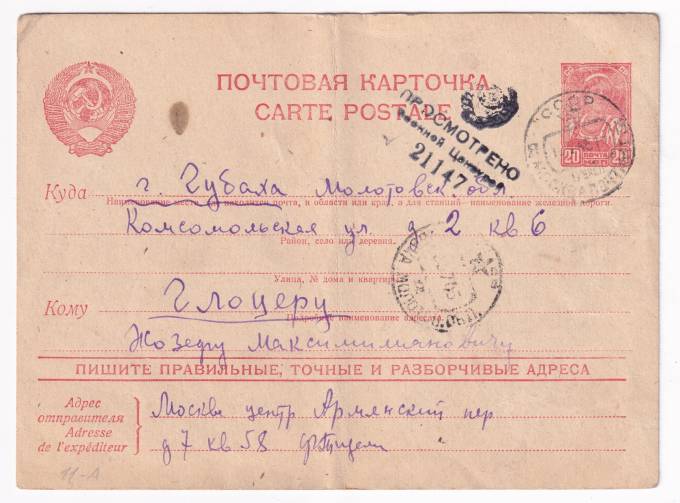 ПОЧТОВАЯ КАРТОЧКА
CARTE POSTALE
ПРОСМОТРЕНО
Военной Цензурой
21147
СССР
20 ПОЧТА 20
Куда
г. Губаха Молотовск. обл
Наименование места, где находится почта, и области или края, а для станций - наименование железной дороги.
Комсомольская ул. д 2 кв 6
Район, село или деревня.
Улица, № дома и квартиры
Кому
Глоцеру
Подробное наименование адресата
Жозефу Максимилиановичу
ПИШИТЕ ПРАВИЛЬНЫЕ, ТОЧНЫЕ И РАЗБОРЧИВЫЕ АДРЕСА
Адрес отправителя
Adresse de l'expéditeur
Москва центр Армянский пер
д 7 кв 58